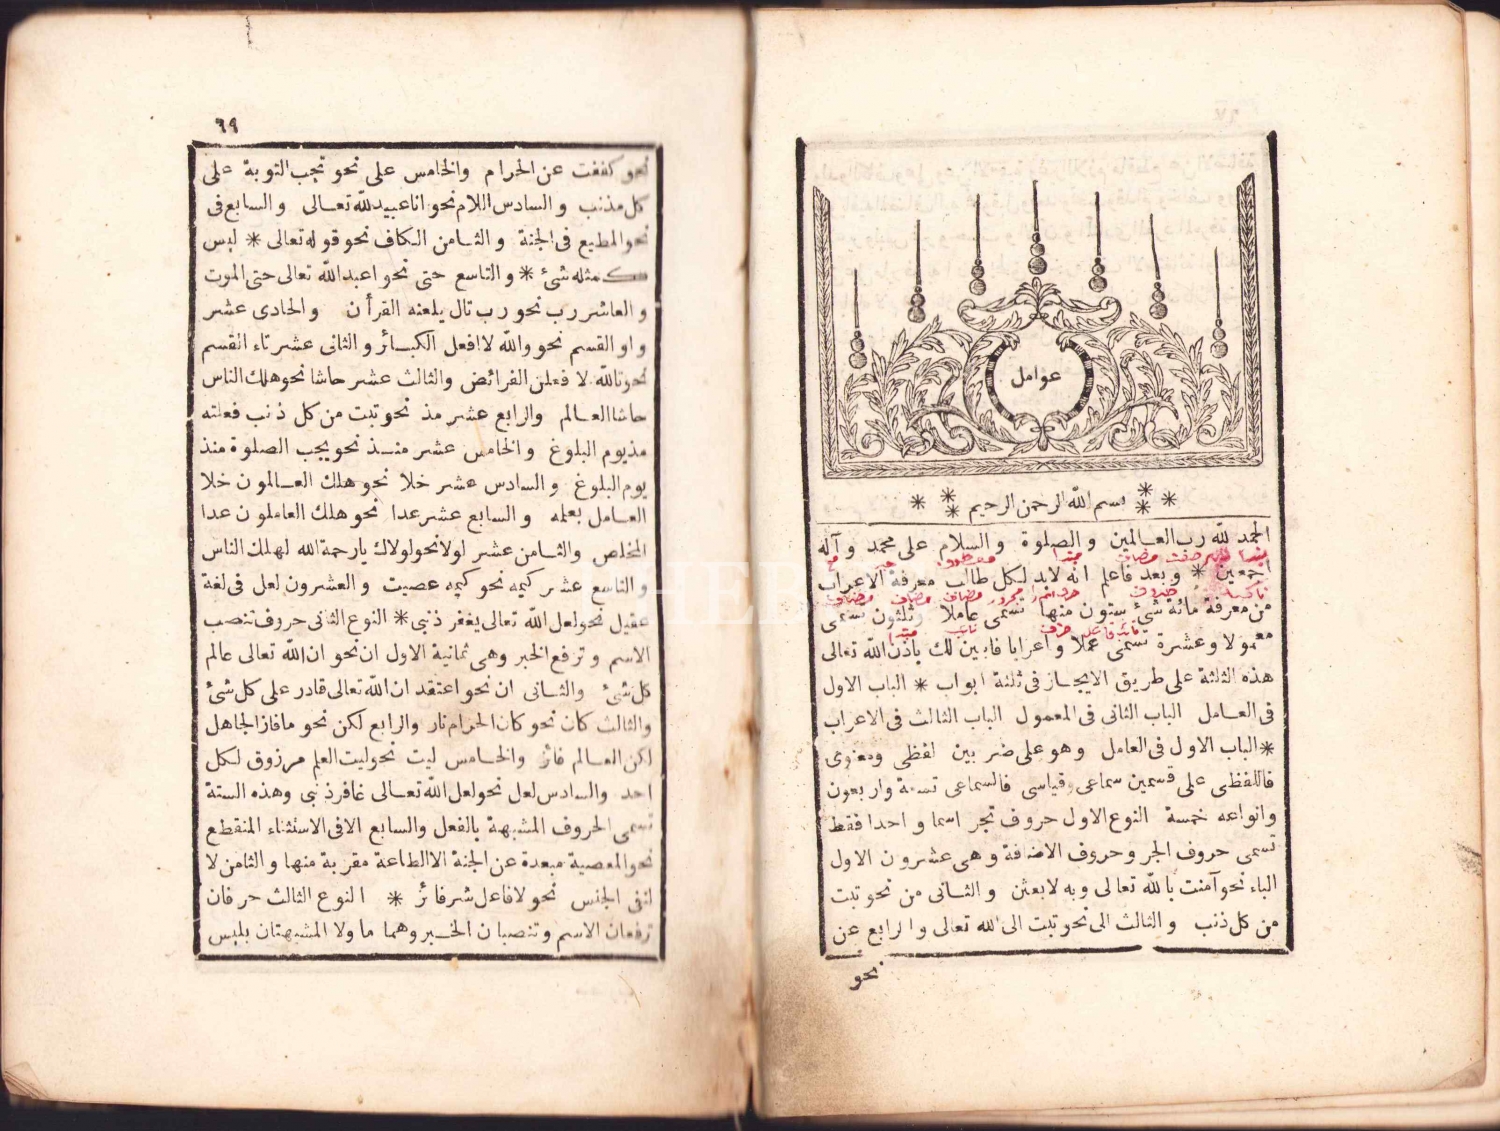 عوامل
بسم الله الرحمن الرحيم
الحمد لله رب العالمين والصلوة والسلام على محمد وآله
اجمعين * وبعد فاعلم انه لابد لكل طالب معرفة الاعراب
من معرفة مائة شئ ستون منها تسمى عاملا وثلثون تسمى
معمولا وعشرة تسمى عملا واعرابا فابين لك باذن الله تعالى
هذه الثلثة على طريق الايجاز فى ثلثة ابواب * الباب الاول
فى العامل الباب الثانى فى المعمول الباب الثالث فى الاعراب
* الباب الاول فى العامل وهو على ضربين لفظى ومعنوى
فاللفظى على قسمين سماعى وقياسى فالسماعى تسعة واربعون
وانواعه خمسة النوع الاول حروف تجر اسما واحدا فقط
تسمى حروف الجر وحروف الاضافة وهى عشرون الاول
الباء نحو آمنت بالله تعالى وبه لابعثن والثانى من نحو تبت
من كل ذنب والثالث الى نحو تبت الى الله تعالى والرابع عن
نحو
٦٩
نحو كففت عن الحرام والخامس على نحو تجب التوبة على
كل مذنب والسادس اللام نحو انا عبيد لله تعالى والسابع فى
نحو المطيع فى الجنة والثامن الكاف نحو قوله تعالى * ليس
كمثله شئ * والتاسع حتى نحو اعبد الله تعالى حتى الموت
والعاشر رب نحو رب تال يلعنه القرأن والحادى عشر
واو القسم نحو والله لا افعل الكبائر والثانى عشر تاء القسم
نحو تالله لا فعلن الفرائض والثالث عشر حاشا نحو هلك الناس
حاشا العالم والرابع عشر مذ نحو تبت من كل ذنب فعلته
مذ يوم البلوغ والخامس عشر منذ نحو يجب الصلوة منذ
يوم البلوغ والسادس عشر خلا نحو هلك العالمون خلا
العامل بعلمه والسابع عشر عدا نحو هلك العاملون عدا
المخلص والثامن عشر لولا نحو لولاك يارحمة الله لهلك الناس
والتاسع عشر كيمه نحو كيمه عصيت والعشرون لعل فى لغة
عقيل نحو لعل الله تعالى يغفر ذنبى * النوع الثانى حروف تنصب
الاسم وترفع الخبر وهى ثمانية الاول ان نحو ان الله تعالى عالم
كل شئ والثانى ان نحو اعتقد ان الله تعالى قادر على كل شئ
والثالث كان نحو كان الحرام نار والرابع لكن نحو ما فاز الجاهل
لكن العالم فائز والخامس ليت نحو ليت العلم مرزوق لكل
احد والسادس لعل نحو لعل الله تعالى غافر ذنبى وهذه الستة
تسمى الحروف المشبهة بالفعل والسابع الا فى الاستثناء المنقطع
نحو المعصية مبعدة عن الجنة الا الطاعة مقربة منها والثامن لا
لنفى الجنس نحو لا فاعل شر فائز * النوع الثالث حرفان
ترفعان الاسم وتنصبان الخبر وهما ما ولا المشبهتان بليس